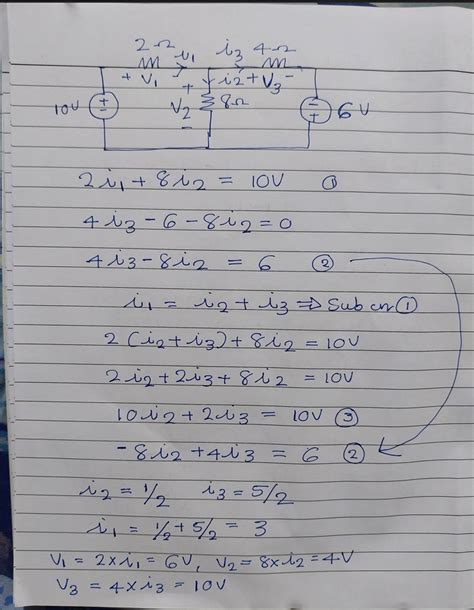 2Ω i₁ i₃ 4Ω
+ V₁ - + i₂ + V₃ -
10V + - V₂ 8Ω - + 6V
-
2i₁ + 8i₂ = 10V ①
4i₃ - 6 - 8i₂ = 0
4i₃ - 8i₂ = 6 ②
i₁ = i₂ + i₃ ⇒ Sub on ①
2(i₂ + i₃) + 8i₂ = 10V
2i₂ + 2i₃ + 8i₂ = 10V
10i₂ + 2i₃ = 10V ③
-8i₂ + 4i₃ = 6 ②
i₂ = 1/2 i₃ = 5/2
i₁ = 1/2 + 5/2 = 3
V₁ = 2×i₁ = 6V, V₂ = 8×i₂ = 4V
V₃ = 4×i₃ = 10V